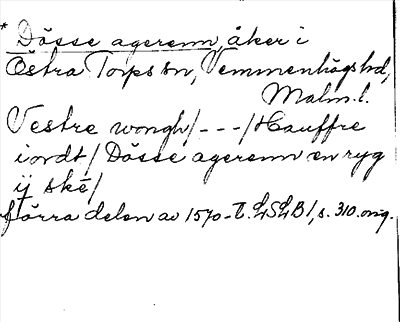 * Dösse agerenn, åker i
Östra Torps sn, Vemmenhögs hd,
Malm. l.
Vestre wongh/ - - - /Hauffre
iordt/ Dösse agerenn en ryg
ij ské/
Förra delen av 1570-t. LSLB 1, s. 310. orig.